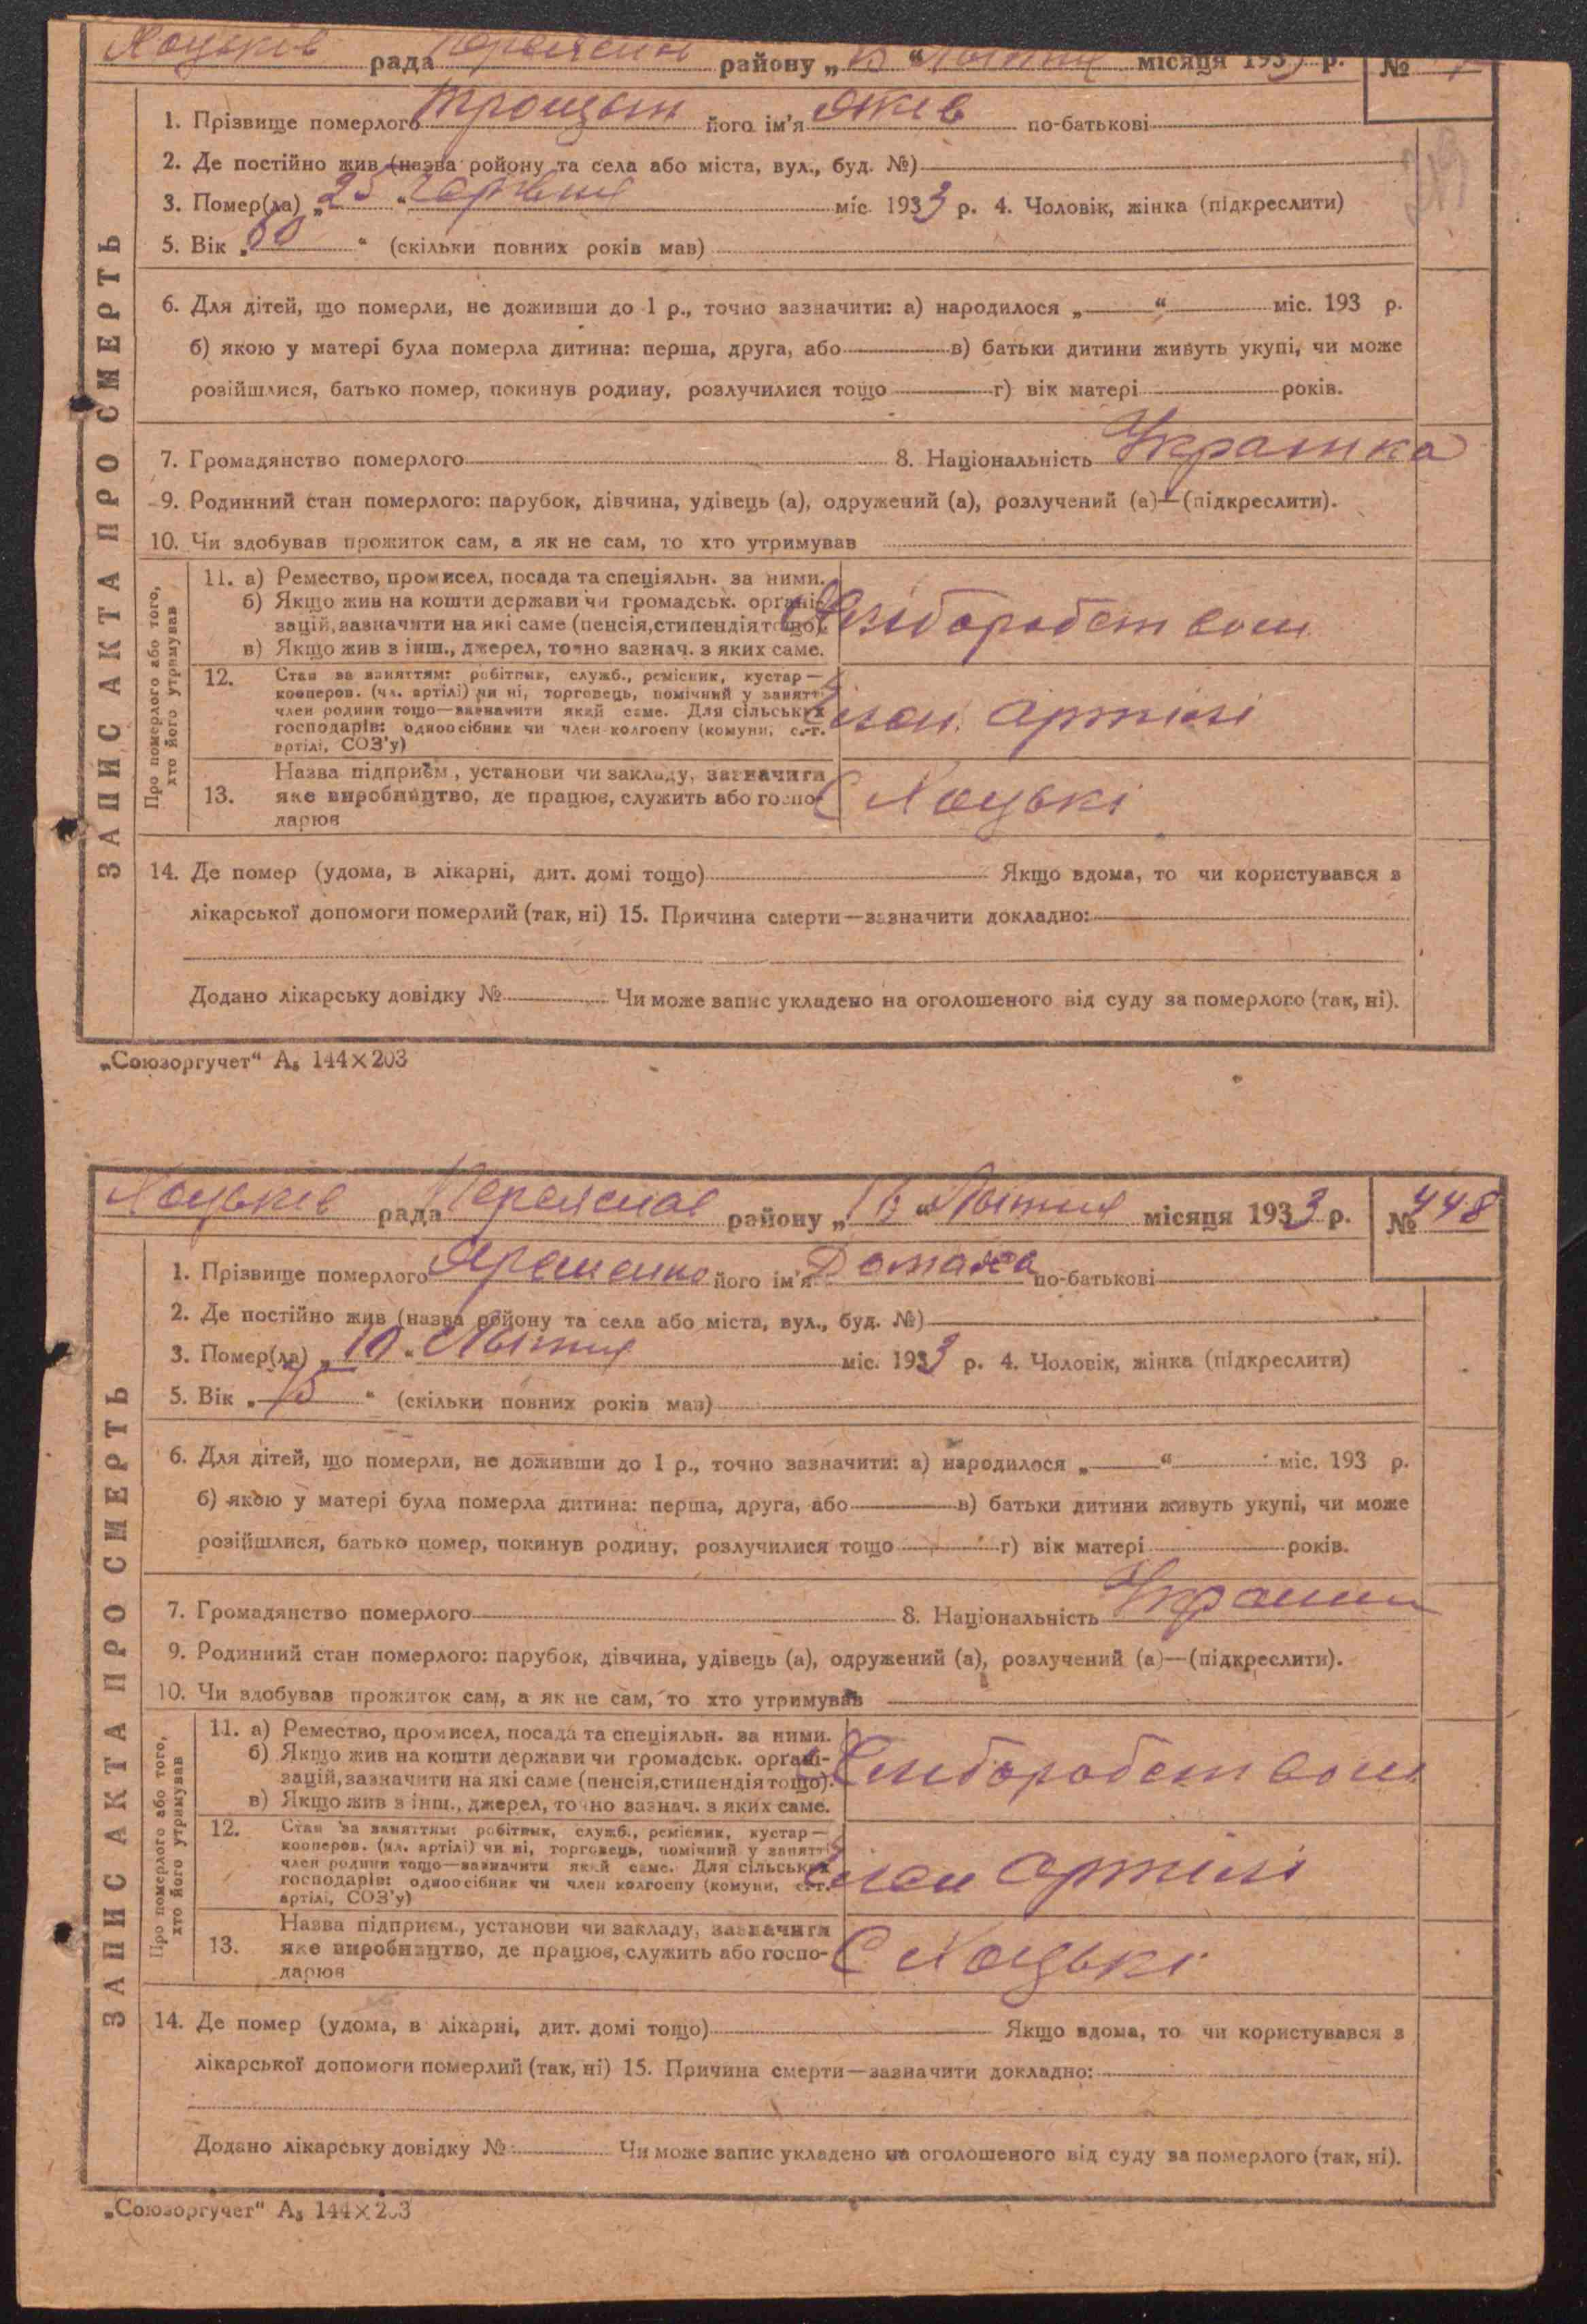 Хоцьків рада Переяслав району „15 “ Липня місяця 1933 р. №
1. Прізвище померлого Троцьин його ім'я Яків по-батькові
2. Де постійно жив (назва ройону та села або міста, вул., буд. №)
3. Помер(ла) „25“ Червня міс. 1933 р. 4. Чоловік, жінка (підкреслити)
5. Вік „60“ (скільки повних років мав)
6. Для дітей, що померли, не доживши до 1 р., точно зазначити: а) народилося „ “ міс. 193 р.
б) якою у матері була померла дитина: перша, друга, або в) батьки дитини живуть укупі, чи може
розійшлися, батько помер, покинув родину, розлучилися тощо г) вік матері років.
7. Громадянство померлого 8. Національність Украинка
9. Родинний стан померлого: парубок, дівчина, удівець (а), одружений (а), розлучений (а)—(підкреслити).
10. Чи здобував прожиток сам, а як не сам, то хто утримував
ЗАПИС АКТА ПРО СМЕРТЬ
Про померлого або того, хто його утримував
11. а) Ремество, промисел, посада та спеціяльн. за ними.
б) Якщо жив на кошти держави чи громадськ. органі-
зацій, зазначити на які саме (пенсія, стипендія тощо).
в) Якщо жив з інш., джерел, точно зазнач. з яких саме.
Хліборобством
12. Стан за заняттям: робітник, служб., ремісник, кустар—
кооперов. (чл. артілі) чи ні, торговець, помічний у занятті
член родини тощо—зазначити який саме. Для сільських
господарів: одноосібник чи член колгоспу (комуни, с.-г.
артілі, СОЗ'у)
Член артілі
13. Назва підприєм., установи чи закладу, зазначити
яке виробництво, де працює, служить або госпо-
дарює
С Хоцькі
14. Де помер (удома, в лікарні, дит. домі тощо) Якщо вдома, то чи користувався з
лікарської допомоги померлий (так, ні) 15. Причина смерти—зазначити докладно:
Додано лікарську довідку № Чи може запис укладено на оголошеного від суду за померлого (так, ні).
„Союзоргучет“ А₅ 144×203
Хоцьків рада Переяслав району „15 “ Липня місяця 1933 р. № 448
1. Прізвище померлого Яременко його ім'я Домаха по-батькові
2. Де постійно жив (назва ройону та села або міста, вул., буд. №)
3. Помер(ла) „10“ Липня міс. 1933 р. 4. Чоловік, жінка (підкреслити)
5. Вік „75“ (скільки повних років мав)
6. Для дітей, що померли, не доживши до 1 р., точно зазначити: а) народилося „ “ міс. 193 р.
б) якою у матері була померла дитина: перша, друга, або в) батьки дитини живуть укупі, чи може
розійшлися, батько помер, покинув родину, розлучилися тощо г) вік матері років.
7. Громадянство померлого 8. Національність
9. Родинний стан померлого: парубок, дівчина, удівець (а), одружений (а), розлучений (а)—(підкреслити).
10. Чи здобував прожиток сам, а як не сам, то хто утримував
ЗАПИС АКТА ПРО СМЕРТЬ
Про померлого або того, хто його утримував
11. а) Ремество, промисел, посада та спеціяльн. за ними.
б) Якщо жив на кошти держави чи громадськ. органі-
зацій, зазначити на які саме (пенсія, стипендія тощо).
в) Якщо жив з інш., джерел, точно зазнач. з яких саме.
Хліборобством
12. Стан за заняттям: робітник, служб., ремісник, кустар—
кооперов. (чл. артілі) чи ні, торговець, помічний у занятті
член родини тощо—зазначити який саме. Для сільських
господарів: одноосібник чи член колгоспу (комуни, с.-г.
артілі, СОЗ'у)
Член артілі
13. Назва підприєм., установи чи закладу, зазначити
яке виробництво, де працює, служить або госпо-
дарює
С Хоцькі
14. Де помер (удома, в лікарні, дит. домі тощо) Якщо вдома, то чи користувався з
лікарської допомоги померлий (так, ні) 15. Причина смерти—зазначити докладно:
Додано лікарську довідку № Чи може запис укладено на оголошеного від суду за померлого (так, ні).
„Союзоргучет“ А₅ 144×203